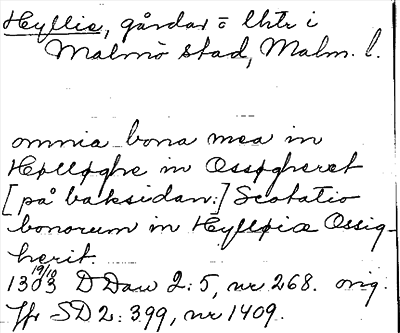 Hyllie, gårdar o lht i
Malmö stad, Malm. l.
omnia bona mea in
Hølløghe in Ossøgheret
[på baksidan:] Scotatio
bonorum in Hylløiæ Ossig-
herit.
19/10
1303 D Dan 2:5, nr 268. orig.
Jfr SD 2: 399, nr 1409.